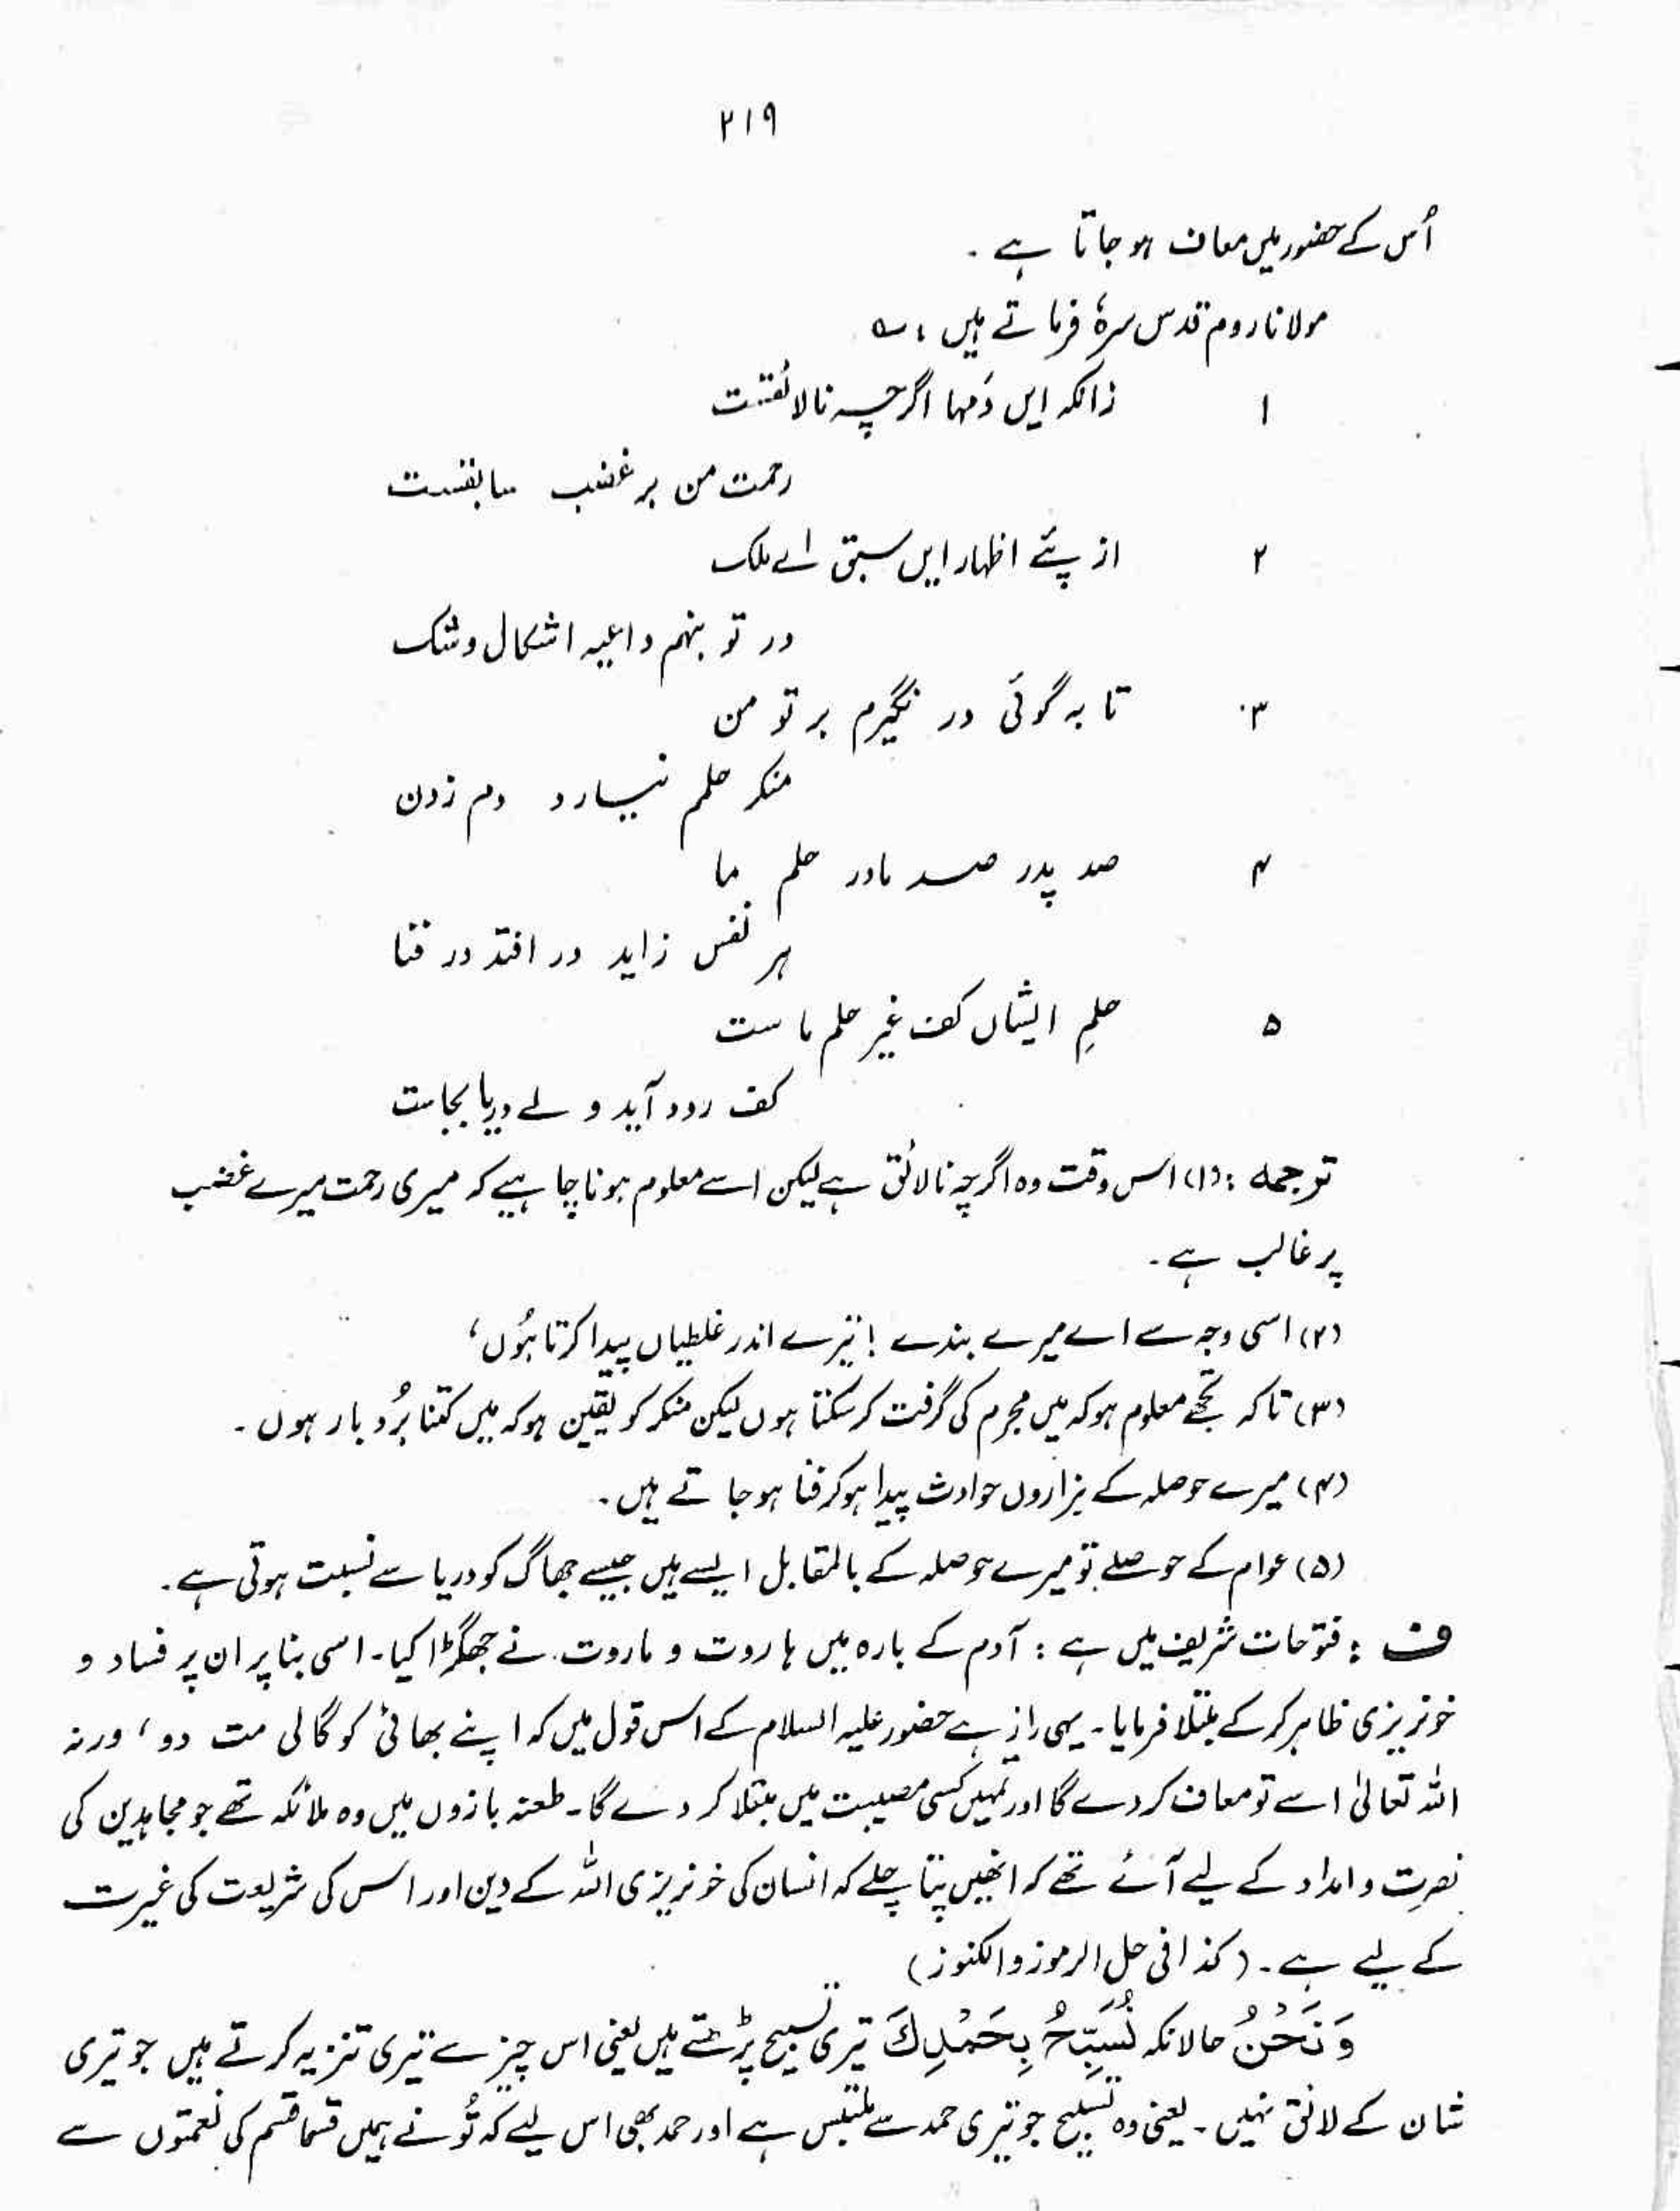 ۲۱۹
اُس کے حضور میں معاف ہو جاتا ہے۔
مولانا روم قدس سرہٗ فرماتے ہیں : ؎
۱ زانکہ ایں دَمہا اگرچہ نالائقست
رحمت من بر غضب سابقست
۲ از پئے اظہار ایں سبق اے ملک
در تو بنہم داعیہ اشکال و شک
۳ تا بہ گوئی در نگیرم بر تو من
منکر حلمم نیارد دم زدن
۴ صد پدر صد مادر حلم ما
ہر نفس زاید در افتد در فنا
۵ حلمِ ایشاں کف غیر حلم ما ست
کف رود آید و لے دریا بجاست
ترجمہ : (۱) اس وقت وہ اگرچہ نالائق ہے لیکن اسے معلوم ہونا چاہیے کہ میری رحمت میرے غضب
پر غالب ہے۔
(۲) اسی وجہ سے اے میرے بندے ! تیرے اندر غلطیاں پیدا کرتا ہُوں،
(۳) تاکہ تجھے معلوم ہو کہ میں مجرم کی گرفت کر سکتا ہوں لیکن منکر کو یقین ہو کہ میں کتنا بُردبار ہوں۔
(۴) میرے حوصلہ کے ہزاروں حوادث پیدا ہو کر فنا ہو جاتے ہیں۔
(۵) عوام کے حوصلے تو میرے حوصلہ کے بالمقابل ایسے ہیں جیسے جھاگ کو دریا سے نسبت ہوتی ہے۔
ف : فتوحات شریف میں ہے : آدم کے بارہ میں ہاروت و ماروت نے جھگڑا کیا۔ اسی بنا پر ان پر فساد و
خونریزی ظاہر کر کے مبتلا فرمایا۔ یہی راز ہے حضور علیہ السلام کے اس قول میں کہ اپنے بھائی کو گالی مت دو ، ورنہ
اللہ تعالیٰ اسے تو معاف کر دے گا اور تمہیں کسی مصیبت میں مبتلا کر دے گا۔ طعنہ بازوں میں وہ ملائکہ تھے جو مجاہدین کی
نصرت و امداد کے لیے آئے تھے کہ انھیں پتا چلے کہ انسان کی خونریزی اللہ کے دین اور اس کی شریعت کی غیرت
کے لیے ہے۔ (کذا فی حل الرموز والکنوز)
وَ نَحْنُ حالانکہ نُسَبِّحُ بِحَمْدِكَ تیری تسبیح پڑھتے ہیں یعنی اس چیز سے تیری تنزیہ کرتے ہیں جو تیری
شان کے لائق نہیں۔ یعنی وہ تسبیح جو تیری حمد سے ملتبس ہے اور حمد بھی اس لیے کہ تُو نے ہمیں قسماقسم کی نعمتوں سے